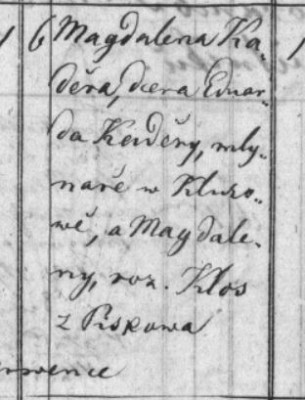 6 Magdalena Ka-
děra, dcera Eduar-
da Kaděry, mly-
náře w Kluzo-
wě, a Magdale-
ny, roz. Klos
z Piskowa